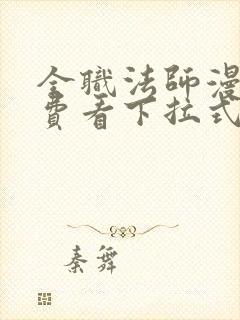 全職法師漫
費看下拉式
秦舞